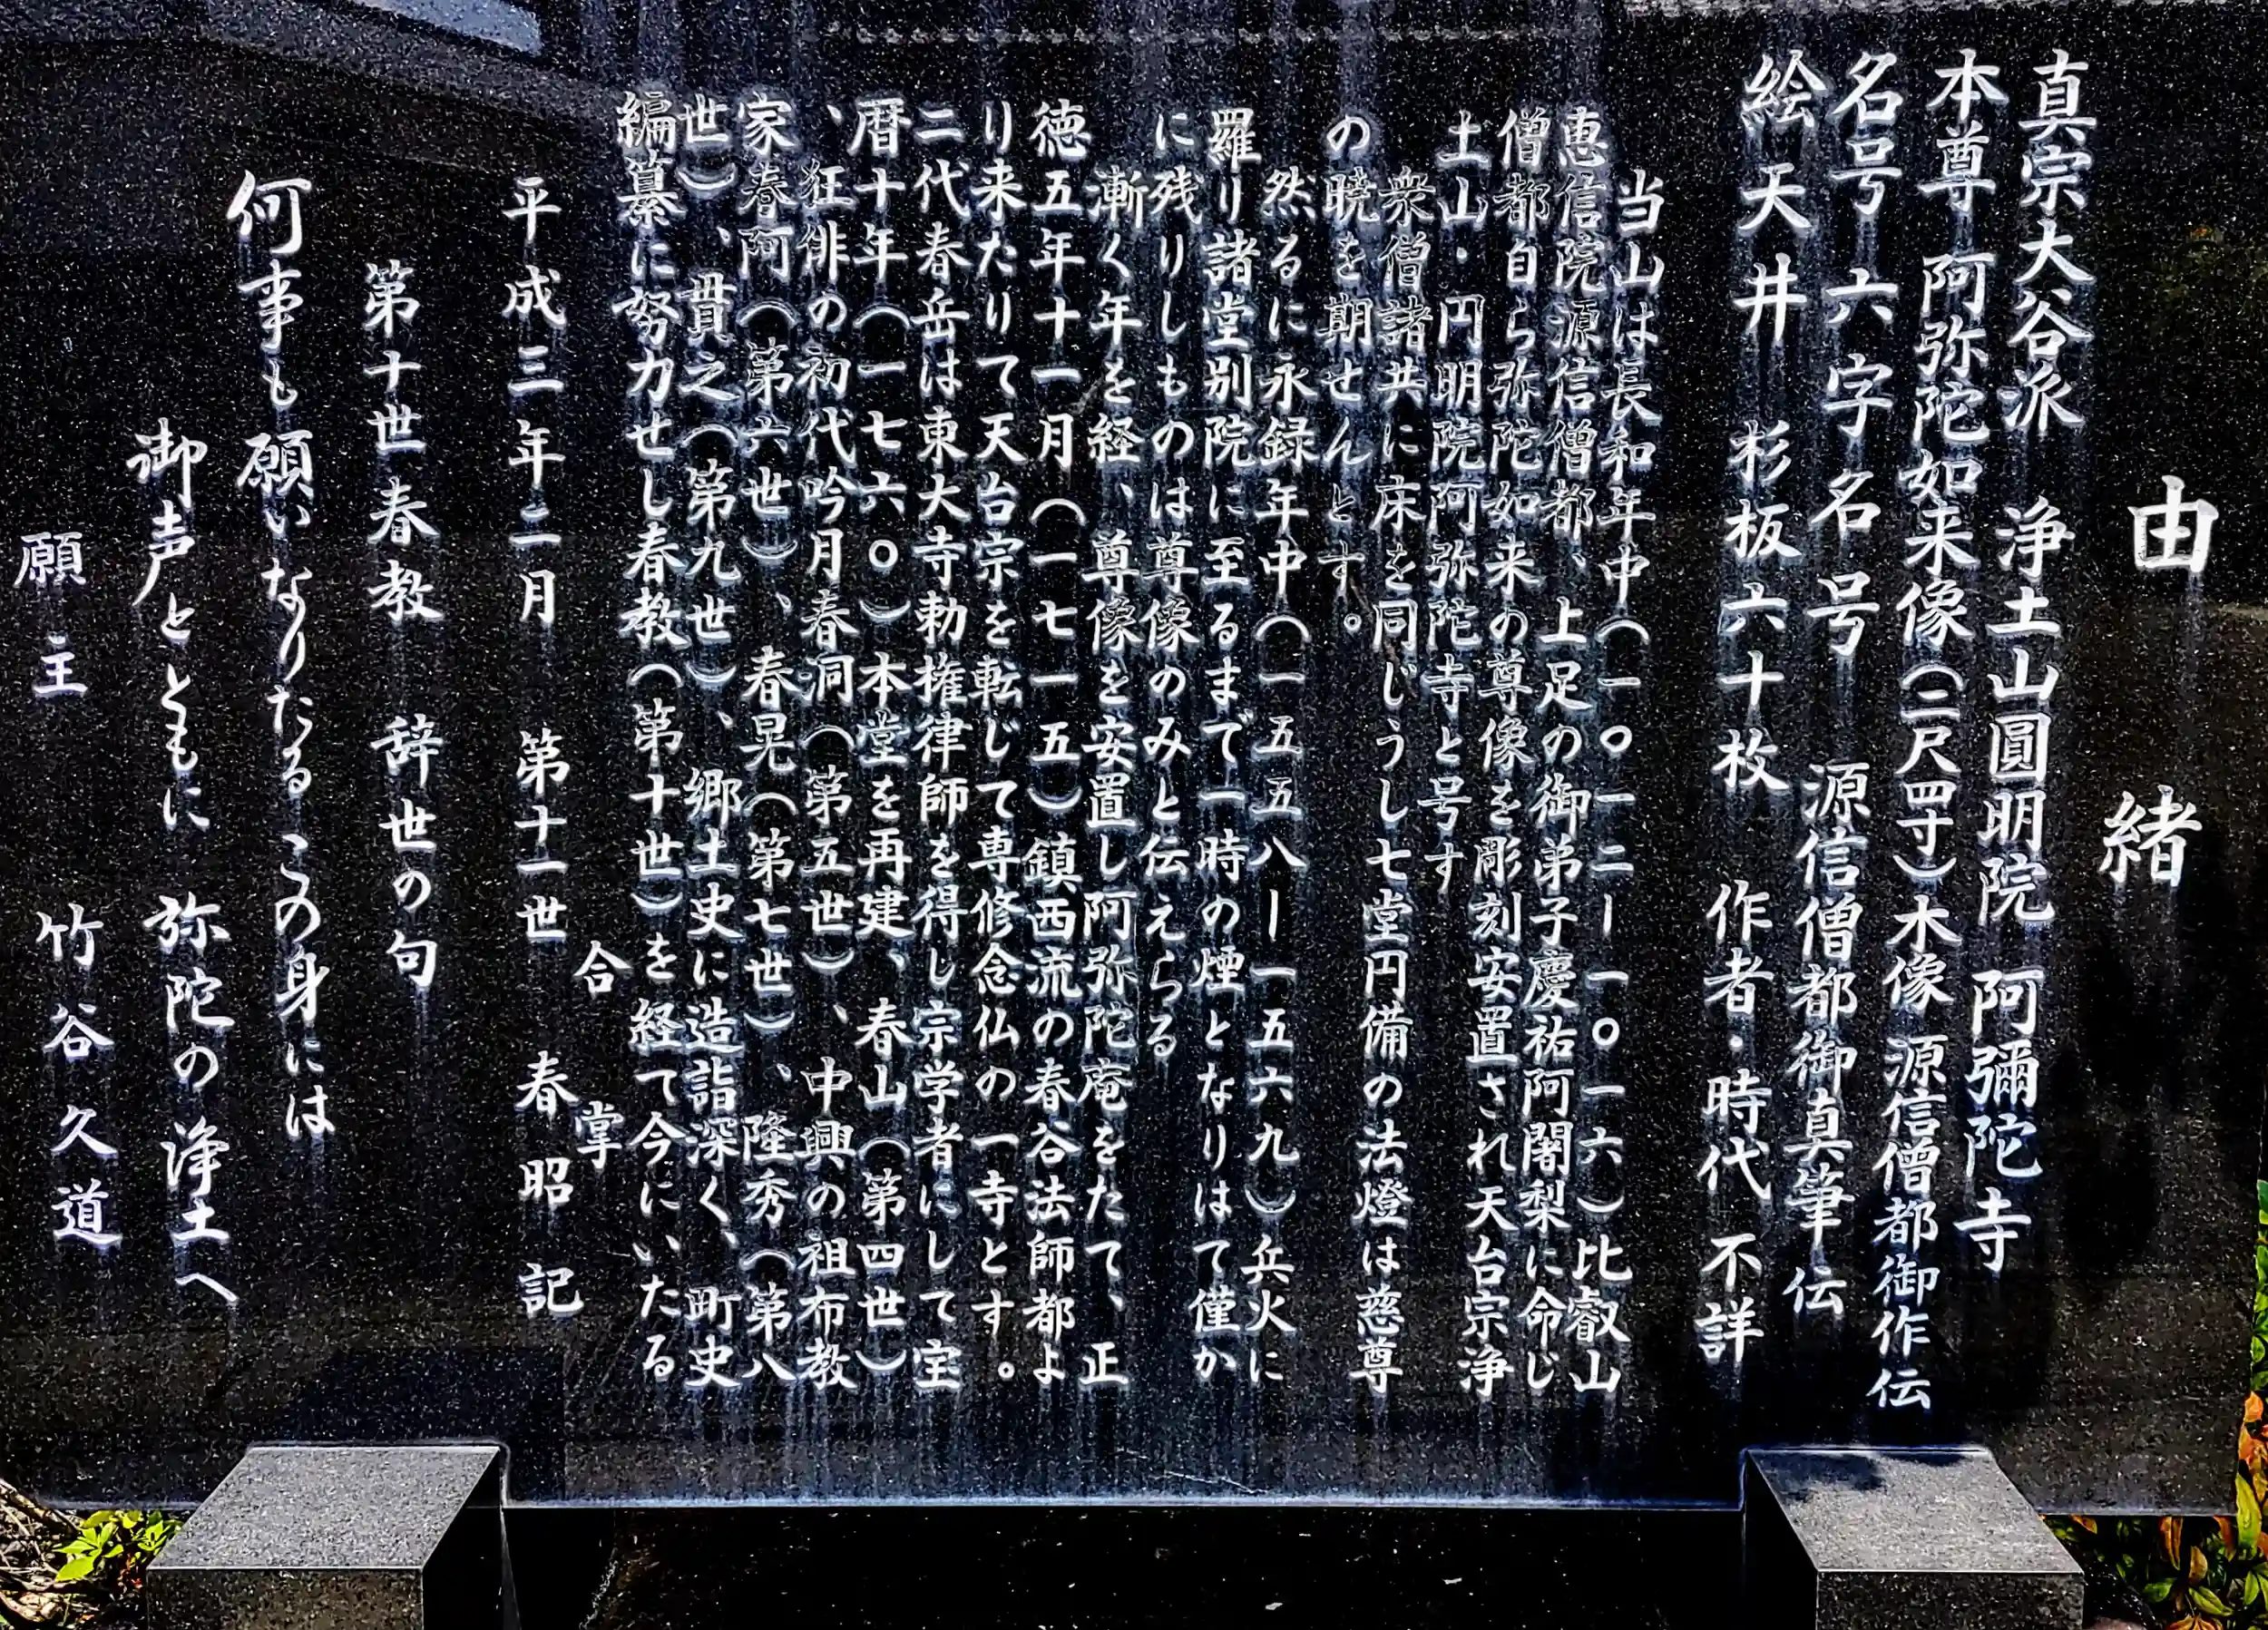 由緒
真宗大谷派 浄土山圓明院 阿彌陀寺
本尊 阿弥陀如来像(二尺四寸)木像 源信僧都御作伝
名号 六字名号 源信僧都御真筆伝
絵天井 杉板六十枚 作者・時代 不詳
当山は長和年中(一〇一二ー一〇一六)比叡山
恵信院源信僧都、上足の御弟子慶祐阿闍梨に命じ
僧都自ら弥陀如来の尊像を彫刻安置され天台宗浄
土山・円明院阿弥陀寺と号す
衆僧諸共に床を同じうし七堂円備の法燈は慈尊
の暁を期せんとす。
然るに永録年中(一五五八ー一五六九)兵火に
羅り諸堂別院に至るまで一時の煙となりはて僅か
に残りしものは尊像のみと伝えらる
漸く年を経、尊像を安置し阿弥陀庵をたて、正
徳五年十一月(一七一五)鎮西流の春谷法師都よ
り来たりて天台宗を転じて専修念仏の一寺とす。
二代春岳は東大寺勅権律師を得し宗学者にして宝
暦十年(一七六〇)本堂を再建、春山(第四世)
、狂俳の初代吟月春洞(第五世)、中興の祖布教
家春阿(第六世)、春晃(第七世)、隆秀(第八
世)、貫之(第九世)、郷土史に造詣深く、町史
編纂に努力せし春教(第十世)を経て今にいたる
合掌
平成三年二月 第十一世 春昭 記
第十世春教 辞世の句
何事も願いなりたるこの身には
御声とともに 弥陀の浄土へ
願主 竹谷久道